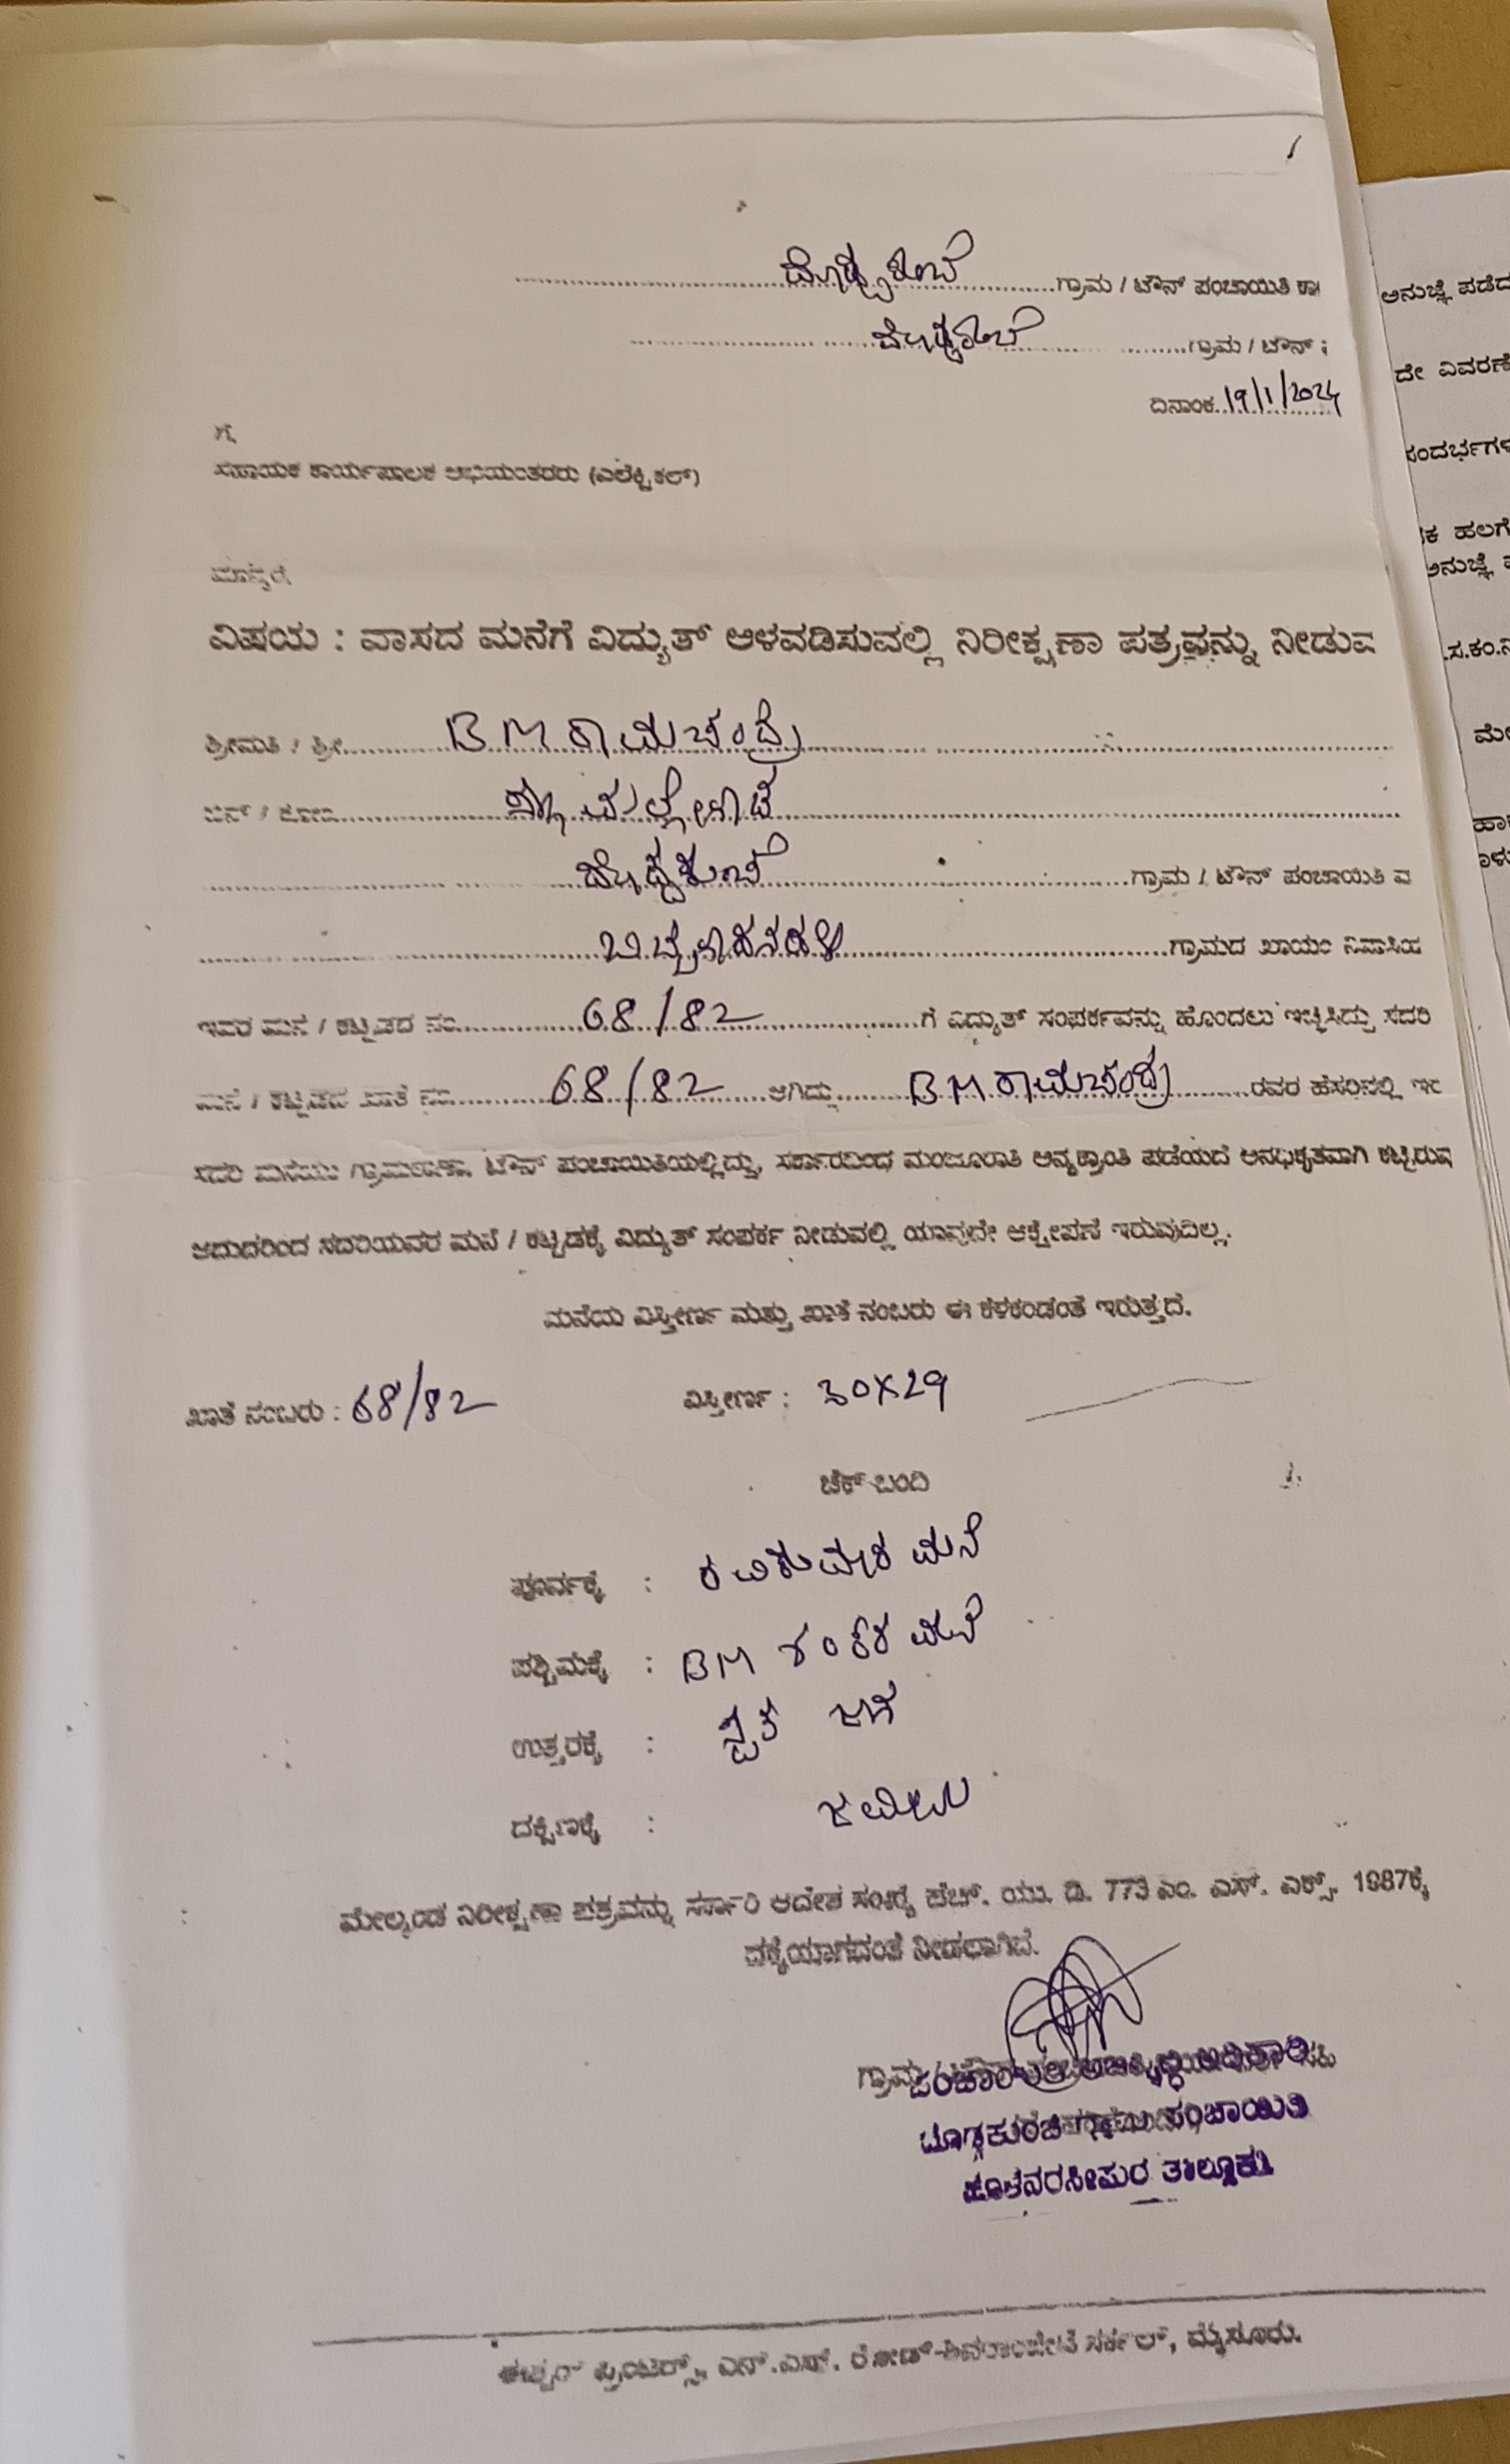 ದೊಡ್ಡಕುಂಚೆ ಗ್ರಾಮ / ಟೌನ್ ಪಂಚಾಯಿತಿ ಕಾ
ದೊಡ್ಡಕುಂಚೆ ಗ್ರಾಮ / ಟೌನ್
ದಿನಾಂಕ 19/1/2024
ಗೆ
ಸಹಾಯಕ ಕಾರ್ಯಪಾಲಕ ಅಭಿಯಂತರರು (ಎಲೆಕ್ಟ್ರಿಕಲ್)
ಮಾನ್ಯರೆ
ವಿಷಯ : ವಾಸದ ಮನೆಗೆ ವಿದ್ಯುತ್ ಅಳವಡಿಸುವಲ್ಲಿ ನಿರೀಕ್ಷಣಾ ಪತ್ರವನ್ನು ನೀಡುವ
ಶ್ರೀಮತಿ / ಶ್ರೀ BM ರಾಮಚಂದ್ರ
ಬಿನ್ / ಕೋಂ ಮಲ್ಲೇಗೌಡ
ದೊಡ್ಡಕುಂಚೆ ಗ್ರಾಮ / ಟೌನ್ ಪಂಚಾಯಿತಿ ವ
ಗ್ರಾಮದ ಖಾಯಂ ನಿವಾಸಿಯ
ಇವರ ಮನೆ / ಕಟ್ಟಡದ ನಂ 68/82 ಗೆ ವಿದ್ಯುತ್ ಸಂಪರ್ಕವನ್ನು ಹೊಂದಲು ಇಚ್ಛಿಸಿದ್ದು ಸದರಿ
ಮನೆ / ಕಟ್ಟಡದ ಖಾತೆ ನಂ 68/82 ಆಗಿದ್ದು BM ರಾಮಚಂದ್ರ ರವರ ಹೆಸರಿನಲ್ಲಿ ಇರ
ಸದರಿ ಮನೆಯು /ಗ್ರಾಮಠಾಣಾ ಟೌನ್ ಪಂಚಾಯಿತಿಯಲ್ಲಿದ್ದು, ಸರ್ಕಾರದಿಂದ ಮಂಜೂರಾತಿ ಅನ್ಯಕ್ರಾಂತಿ ಪಡೆಯದೆ ಅನಧಿಕೃತವಾಗಿ ಕಟ್ಟಿರುವ
ಆದುದರಿಂದ ಸದರಿಯವರ ಮನೆ / ಕಟ್ಟಡಕ್ಕೆ ವಿದ್ಯುತ್ ಸಂಪರ್ಕ ನೀಡುವಲ್ಲಿ ಯಾವುದೇ ಆಕ್ಷೇಪನೆ ಇರುವುದಿಲ್ಲ.
ಮನೆಯ ವಿಸ್ತೀರ್ಣ ಮತ್ತು ಖಾತೆ ನಂಬರು ಈ ಕೆಳಕಂಡಂತೆ ಇರುತ್ತದೆ.
ಖಾತೆ ನಂಬರು : 68/82 ವಿಸ್ತೀರ್ಣ : 30X29
ಚೆಕ್ ಬಂದಿ
ಪೂರ್ವಕ್ಕೆ : ರವಿಕುಮಾರ ಮನೆ
ಪಶ್ಚಿಮಕ್ಕೆ : BM ಶಂಕರ ಮನೆ
ಉತ್ತರಕ್ಕೆ : ಸ್ವತ ಜಾಗ
ದಕ್ಷಿಣಕ್ಕೆ : ಜಮೀನು
ಮೇಲ್ಕಂಡ ನಿರೀಕ್ಷಣಾ ಪತ್ರವನ್ನು ಸರ್ಕಾರಿ ಆದೇಶ ಸಂಖ್ಯೆ ಹೆಚ್. ಯು. ಡಿ. 773 ಎಂ. ಎನ್. ಎಕ್ಸ್. 1987ಕ್ಕೆ
ದಕ್ಕೆಯಾಗದಂತೆ ನೀಡಲಾಗಿದೆ.
ಪಂಚಾಯಿತಿ ಅಭಿವೃದ್ಧಿ ಅಧಿಕಾರಿ
ದೊಡ್ಡಕುಂಚೆ ಗ್ರಾಮ ಪಂಚಾಯಿತಿ
ಹೊಳೆನರಸೀಪುರ ತಾಲ್ಲೂಕು
ಪ್ರಿಂಟರ್ಸ್, ಎನ್.ಎಸ್. ರೋಡ್-ಶಿವರಾಂಪೇಟೆ ಸರ್ಕಲ್, ಮೈಸೂರು.
ಅನುಜ್ಞೆ ಪಡೆದ
ದೇ ವಿವರಣೆ
ಸಂದರ್ಭಗಳ
ಕ ಹಲಗೆ
ಅನುಜ್ಞೆ
.ಸ.ಕಂ.ನಿ
ಮೇ
ಹಾ